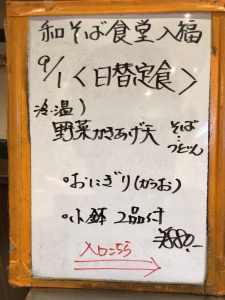 和そば食堂入福
9/1<日替定食>
冷・温)
野菜かきあげ天 そば…うどん
・おにぎり(かつお)
・小鉢 2品付
¥880.-
入口こちら